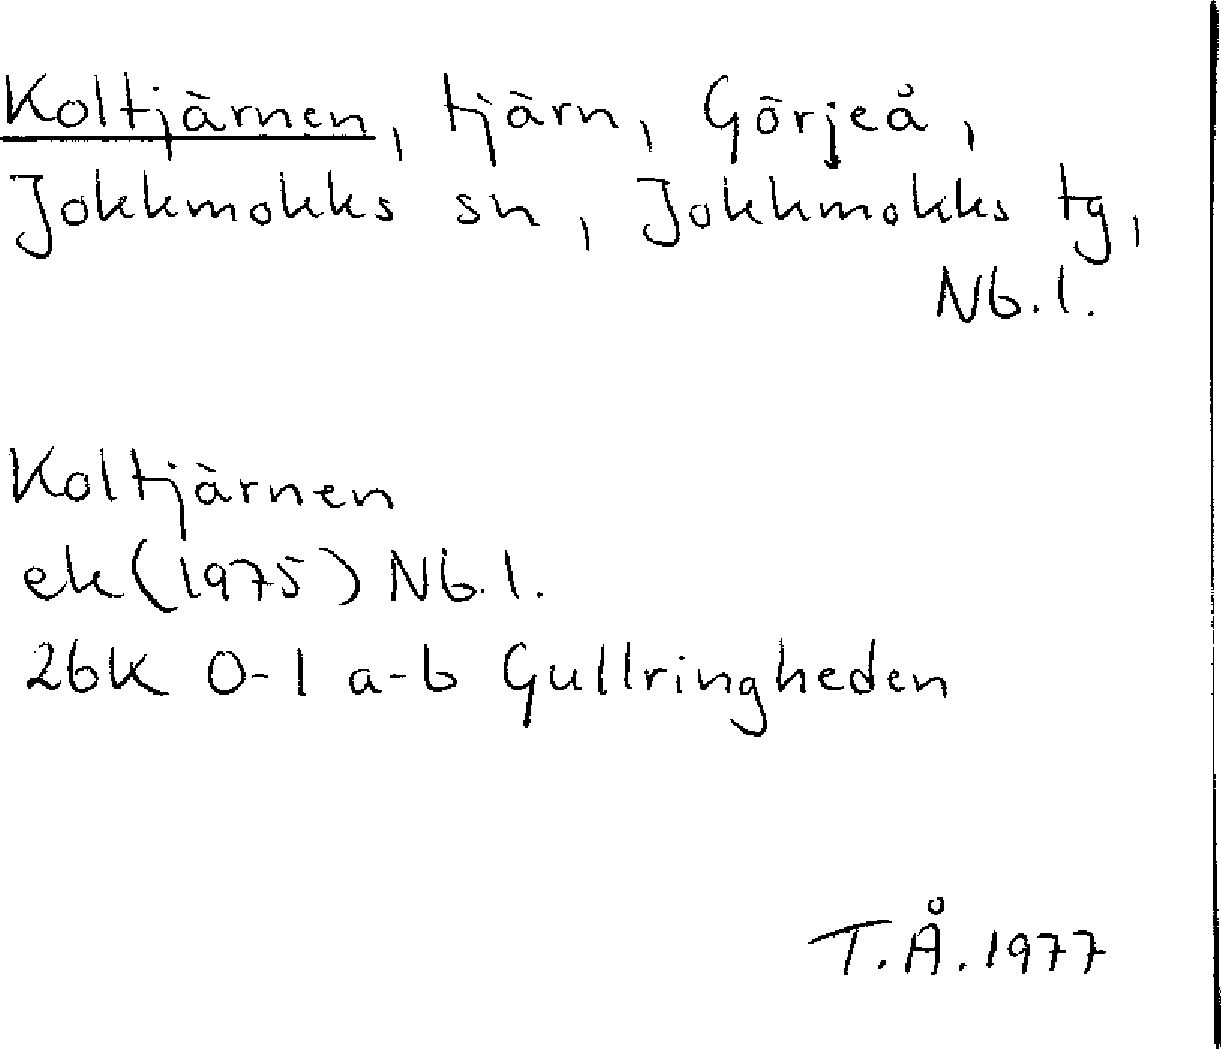 Koltjärnen, tjärn, Görjeå,
Jokkmokks sn, Jokkmokks tg,
Nb.l.
Koltjärnen
ek (1975) Nb.l.
26K 0-1 a-b Gullringheden
T.Å. 1977